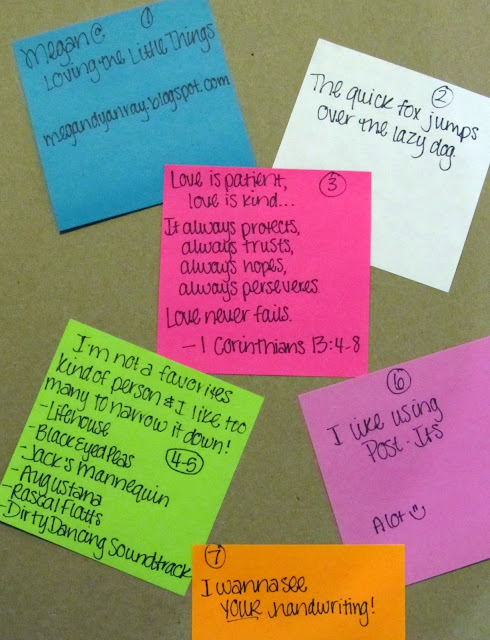 1
Megan ☺
Loving the Little Things
megandyanray.blogspot.com
2
The quick fox jumps
over the lazy dog.
3
Love is patient,
love is kind...
It always protects,
always trusts,
always hopes,
always perseveres.
Love never fails.
- 1 Corinthians 13:4-8
4-5
I'm not a favorites
kind of person & I like too
many to narrow it down!
-Lifehouse
-Black Eyed Peas
-Jack's Mannequin
-Augustana
-Rascal Flatts
-Dirty Dancing Soundtrack
6
I like using
Post-Its
A lot ☺
7
I wanna see
YOUR handwriting!